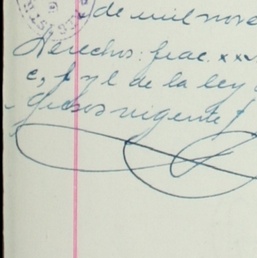 de mil nove
Derechos: frac. xxv
c, f y l de la ley
gresos vigente